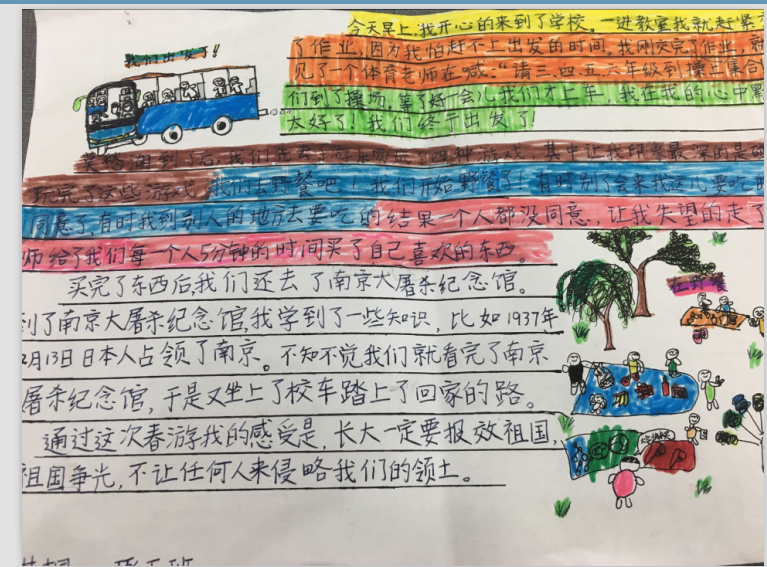 我们出发了！
今天早上,我开心的来到了学校。一进教室我就赶紧
了作业,因为我怕赶不上出发的时间。我刚交完了作业,就
见了一个体育老师在喊:“请三、四、五、六年级到操场集合
们到了操场,等了好一会儿我们才上车,我在我的心中
太好了！我们终于出发了！
到了后,我们先去了游乐场玩了四种游戏,其中让我印象最深的是
玩完了这些游戏,我们去野餐吧！我们开始野餐了！有时别了会来我这儿要吃的
同意了,有时我到别人的地方去要吃的结果一个人都没同意,让我失望的走了
师给了我们每一个人5分钟的时间买了自己喜欢的东西。
买完了东西后,我们还去了南京大屠杀纪念馆。
到了南京大屠杀纪念馆,我学到了一些知识,比如1937年
2月13日日本人占领了南京。不知不觉我们就看完了南京
屠杀纪念馆,于是又坐上了校车踏上了回家的路。
通过这次春游我的感受是,长大一定要报效祖国,
祖国争光,不让任何人来侵略我们的领土。
在野餐